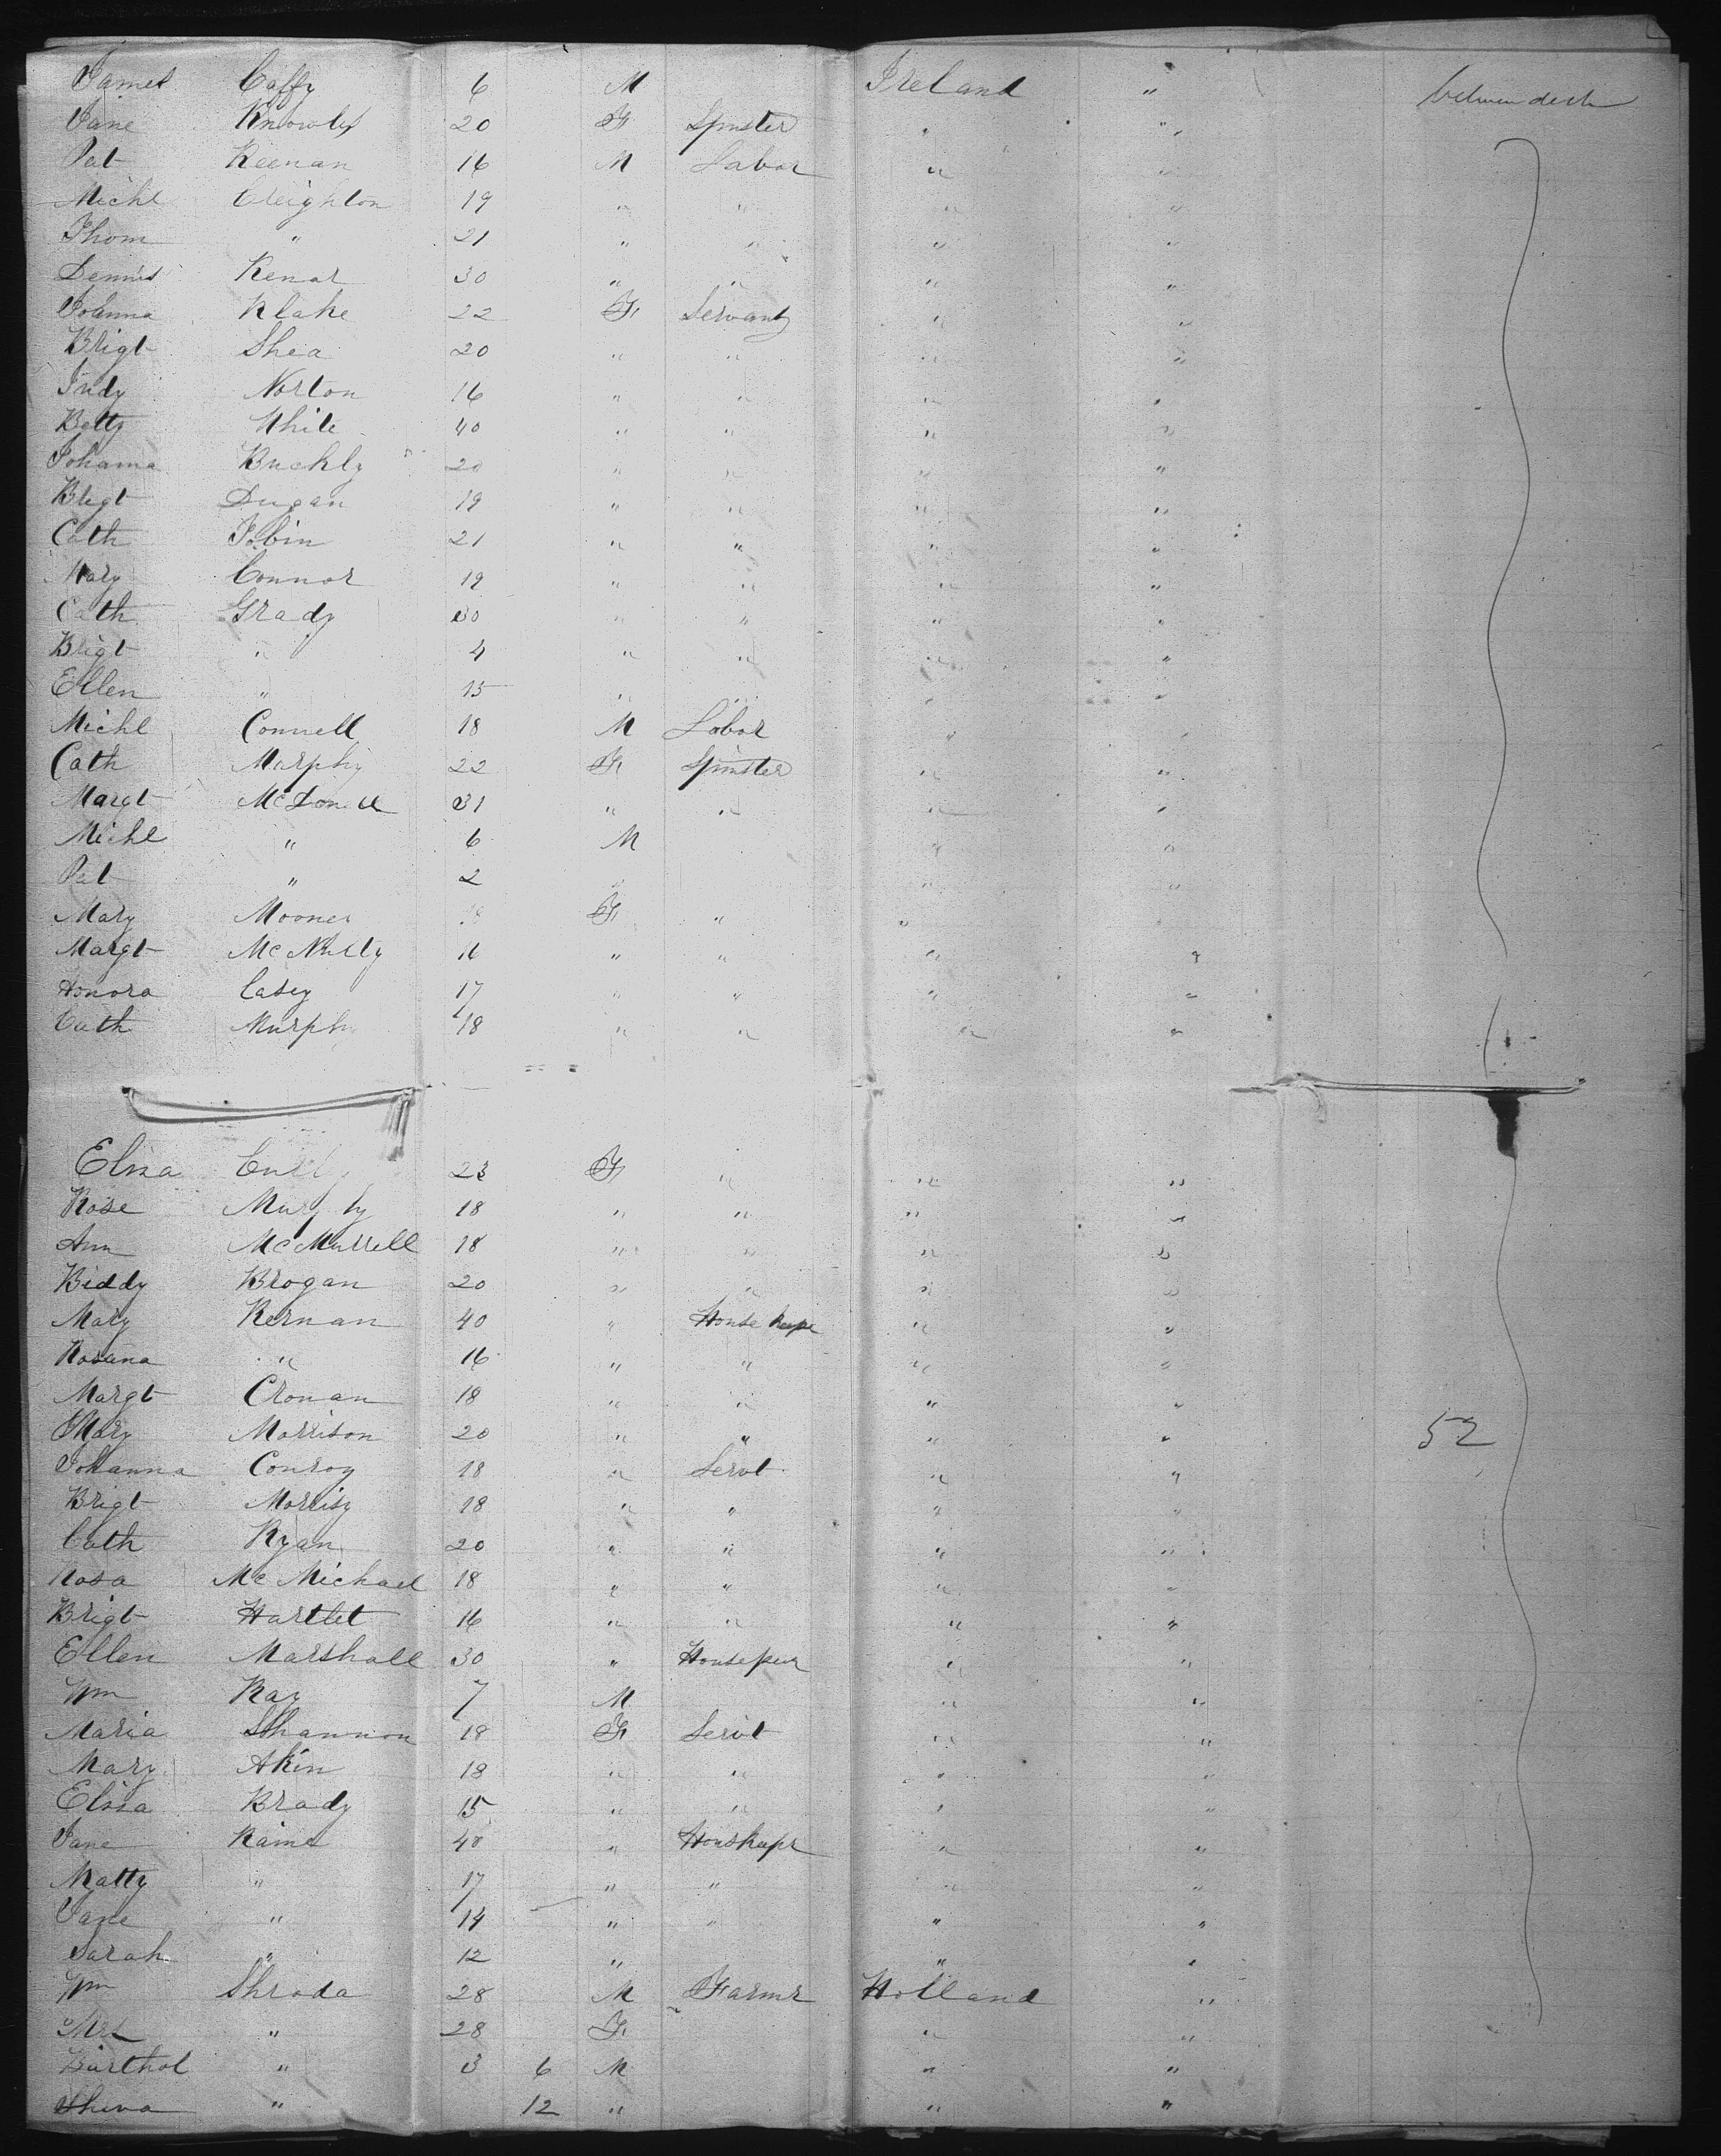 James Caffy 6 M Ireland " between decks
Jane Knowles 20 F Spinster " "
Pat Keenan 16 M Labor " "
Michl Creighton 19 " " " "
Thom " 21 " " " "
Dennis Kenar 30 " " " "
Johnna Klake 22 F Servant " "
Brigt Shea 20 " " " "
Judy Norton 16 " " " "
Betty White 40 " " " "
Johanna Buckly 20 " " " "
Bligt Dugan 19 " " " "
Cath Tobin 21 " " " "
Mary Connor 19 " " " "
Cath Grady 30 " " " "
Brigt " 4 " " " "
Ellen " 15 " " " "
Michl Connell 18 M Labor " "
Cath Murphy 22 F Spinster " "
Margt McDonell 31 " " " "
Michl " 6 M " "
Pat " 2 " " "
Mary Mooner F " "
Margt McNully 16 " " " "
Honora Casey 17 " " " "
Cath Murphy 18 " " " "
Elisa 23 F " " "
Rose Murphy 18 " " " "
Ann McMurrell 18 " " " "
Biddy Brogan 20 " " " "
Mary Kernan 40 " House kepe " "
Rosana " 16 " " " "
Margt Cronan 18 " " " "
Mary Morrison 20 " " " " 52
Johanna Conroy 18 " Servt " "
Brigt Morrisy 18 " " " "
Cath Ryan 20 " " " "
Rosa Mc Michael 18 " " " "
Brigt Hartlet 16 " " " "
Ellen Marshall 30 " Housepeer " "
Wm Ray 7 M " "
Maria Shannon 18 F Servt " "
Mary Akin 18 " " " "
Elisa Brady 15 " " " "
Jane Raine 40 " Houskepr " "
Matty " 17 " " " "
Jane " 14 " " " "
Sarah " 12 " " "
Wm Shroda 28 M Farmr Holland "
Mrs " 28 F " "
Barthol " 3 6 M " "
" 12 " " "